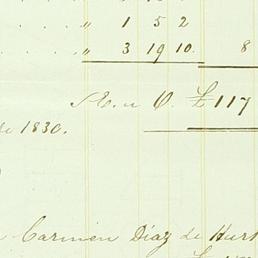 . . . . " 1 5 2
. . . . " 3 19 10. 8
S. E. u O. £117
de 1830.
Carmen Díaz de Hurt